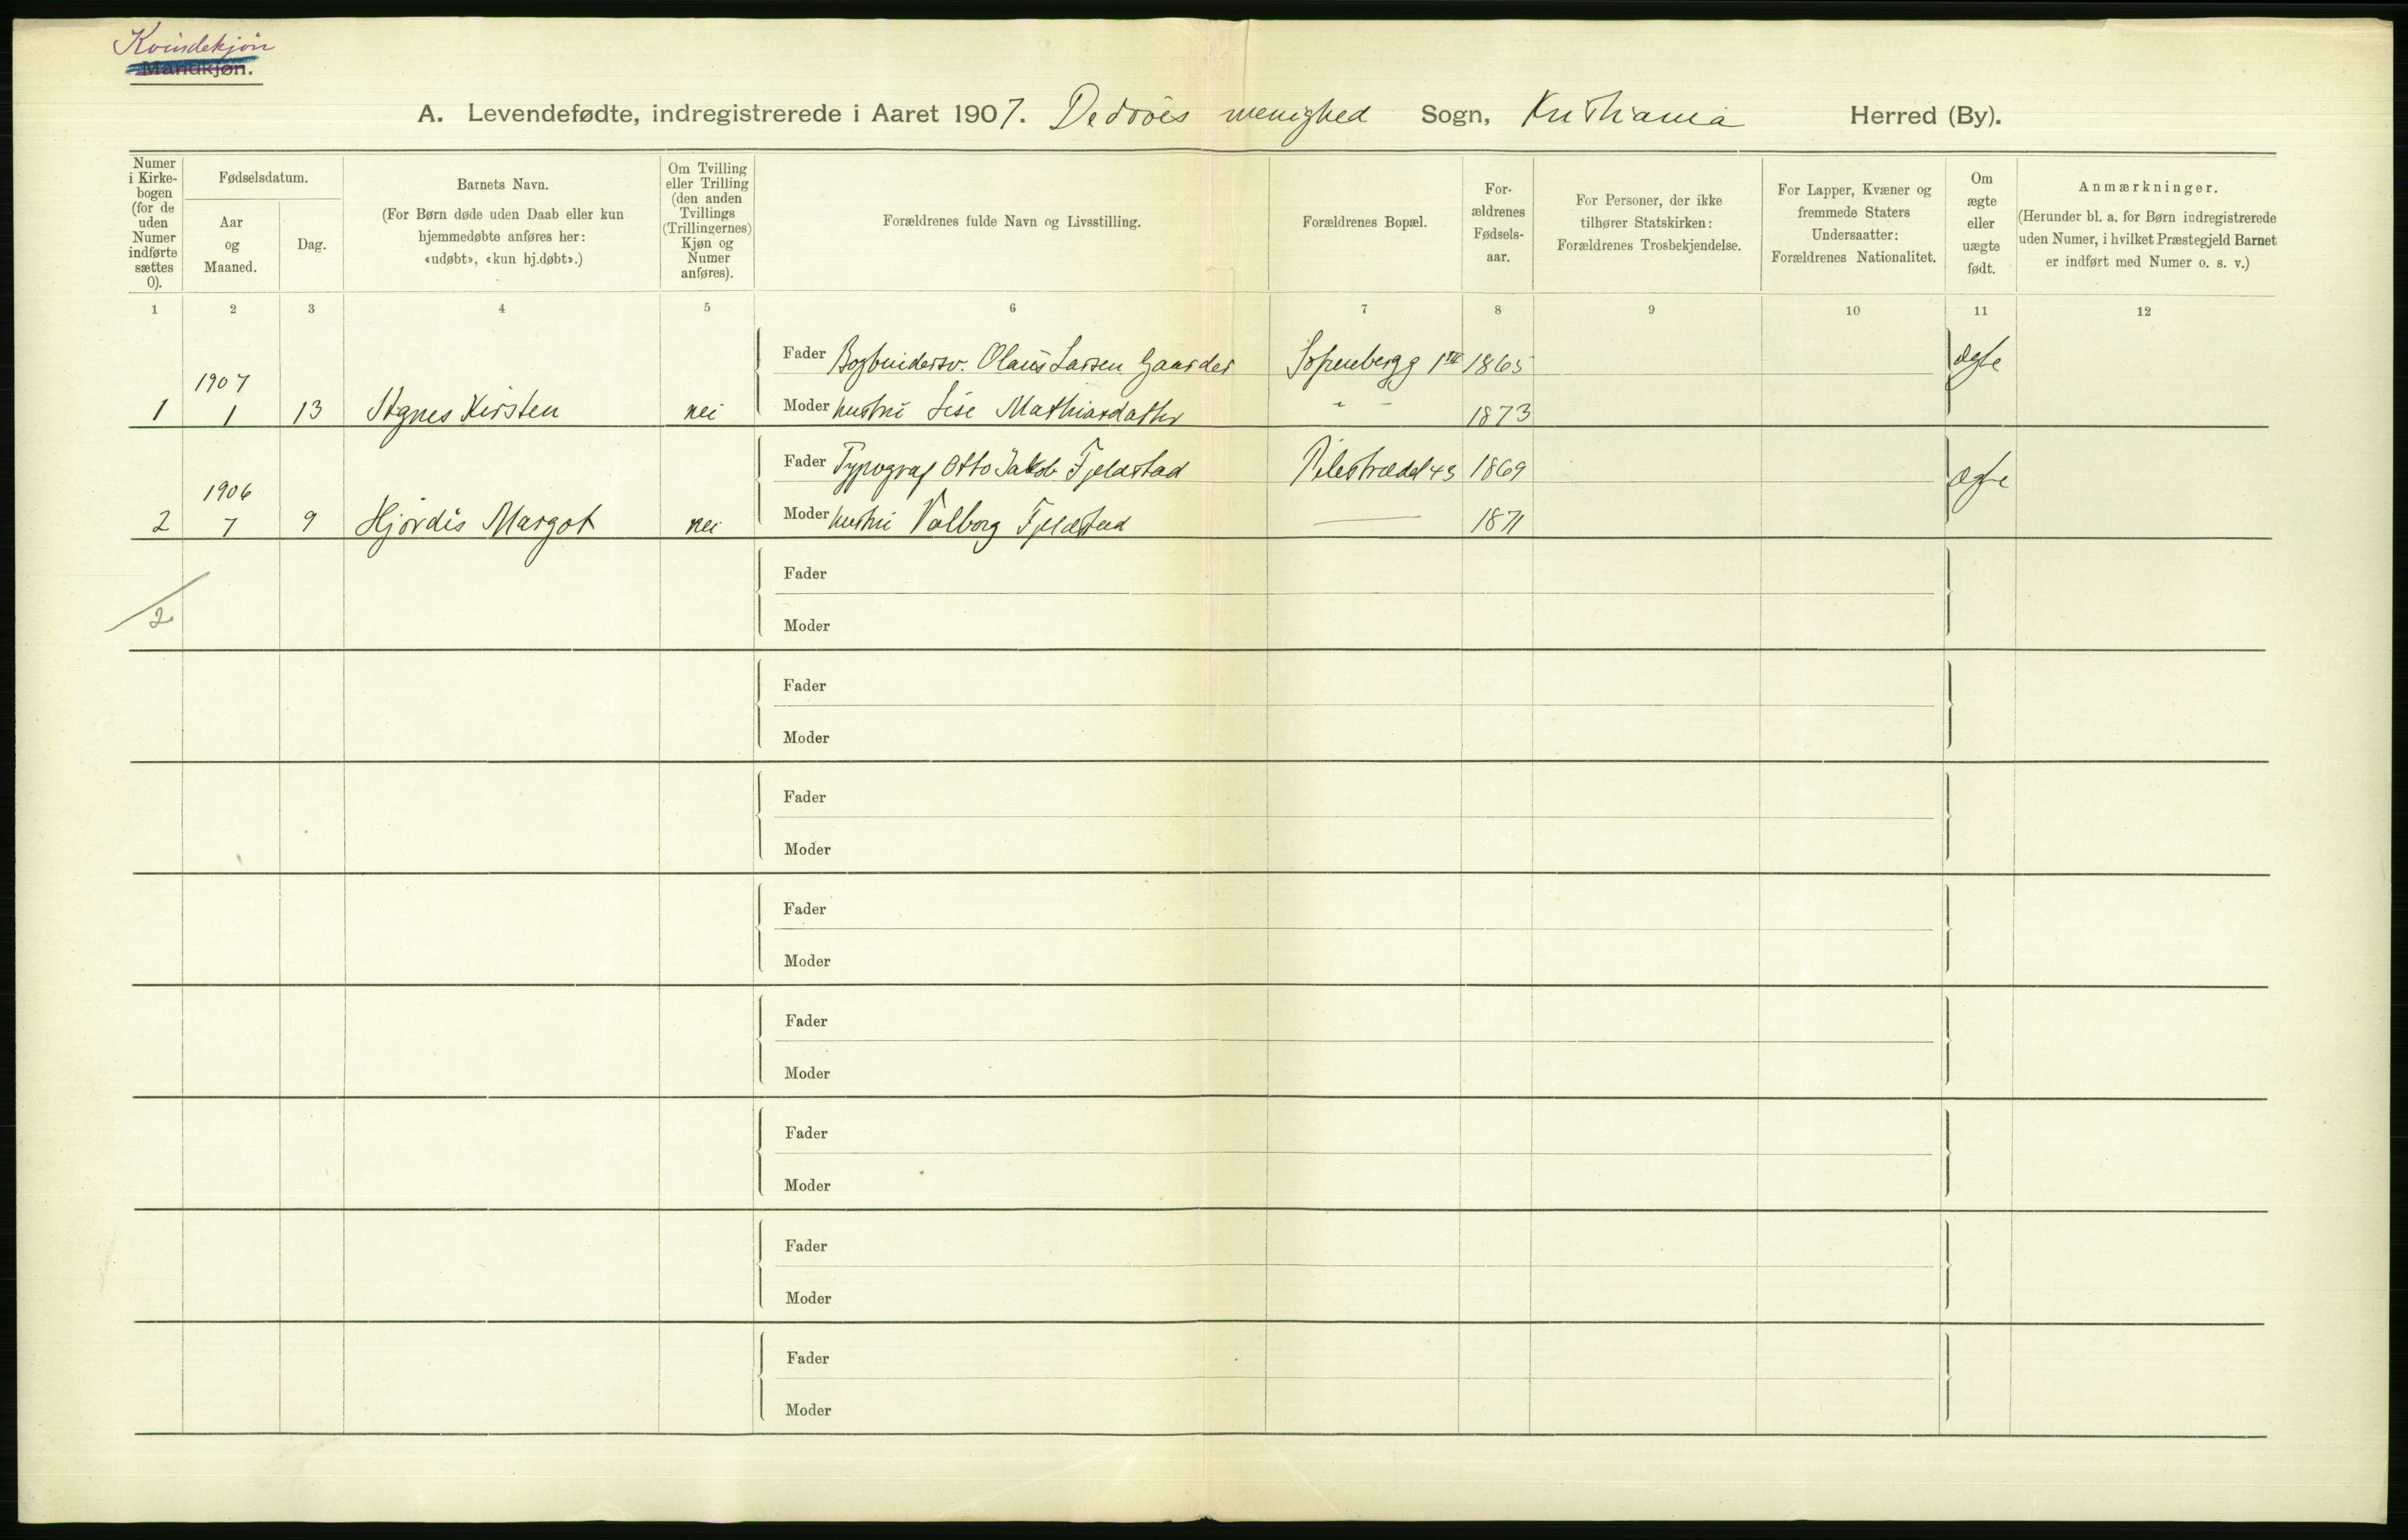 Kvindekjøn
Mandkjøn.
A. Levendefødte, indregistrerede i Aaret 1907. Dedøves menighed Sogn, Kristiania Herred (By).
Numer i Kirkebogen (for de uden Numer indførte sættes 0).
Fødselsdatum.
Aar og Maaned.
Dag.
Barnets Navn.
(For Børn døde uden Daab eller kun hjemmedøbte anføres her: «udøbt», «kun hj.døbt».)
Om Tvilling eller Trilling (den anden Tvillings (Trillingernes) Kjøn og Numer anføres).
Forældrenes fulde Navn og Livsstilling.
Forældrenes Bopæl.
For-ældrenes Fødsels-aar.
For Personer, der ikke tilhører Statskirken: Forældrenes Trosbekjendelse.
For Lapper, Kvæner og fremmede Staters Undersaatter: Forældrenes Nationalitet.
Om ægte eller uægte født.
Anmærkninger.
(Herunder bl. a. for Børn indregistrerede uden Numer, i hvilket Præstegjeld Barnet er indført med Numer o. s. v.)
1 2 3 4 5 6 7 8 9 10 11 12
Fader Bogbindersv. Olaus Larsen Gaarder 1865 ægte
1907
1 1 13 Agnes Kirsten nei Moder hustru Lise Mathiasdatter " - 1873
Fader Typograf Otto Jakob Fjeldstad Pilestrædet 43 1869 ægte
1906
2 7 9 Hjørdis Margot nei Moder hustru Valborg Fjeldstad — 1871
Fader
2
Moder
Fader
Moder
Fader
Moder
Fader
Moder
Fader
Moder
Fader
Moder
Fader
Moder
Fader
Moder